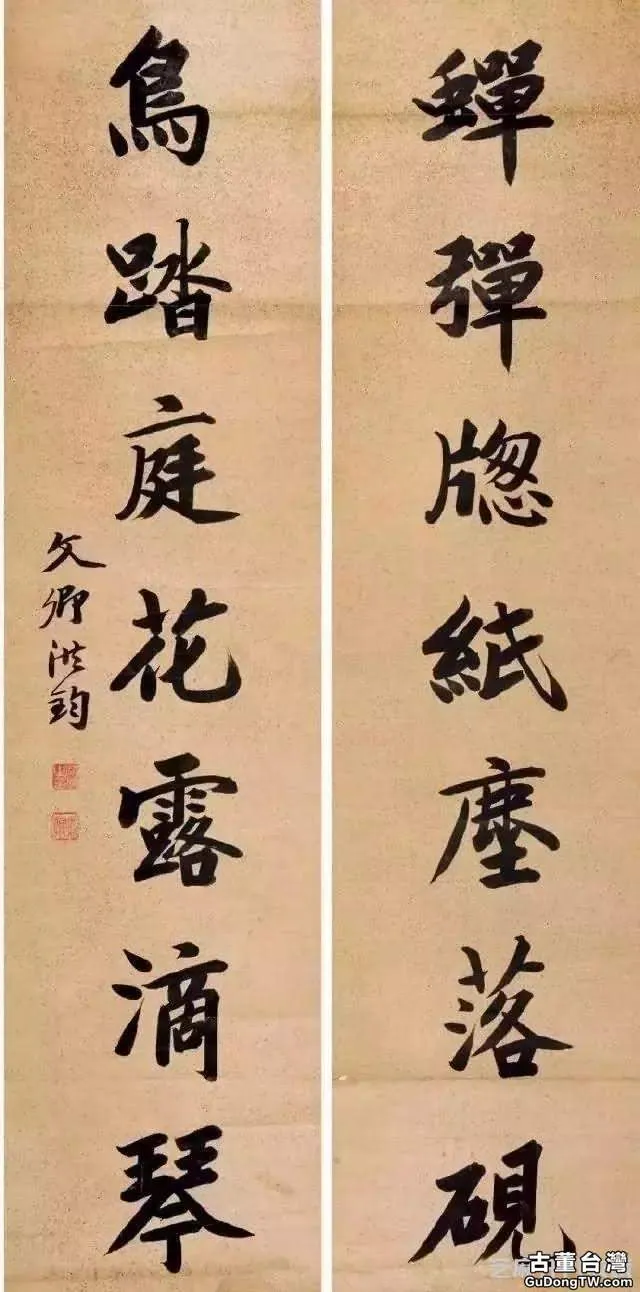 蟬彈牕紙塵落硯
鳥踏庭花露滴琴
文卿洪鈞
古董台灣
GuDongTW.com